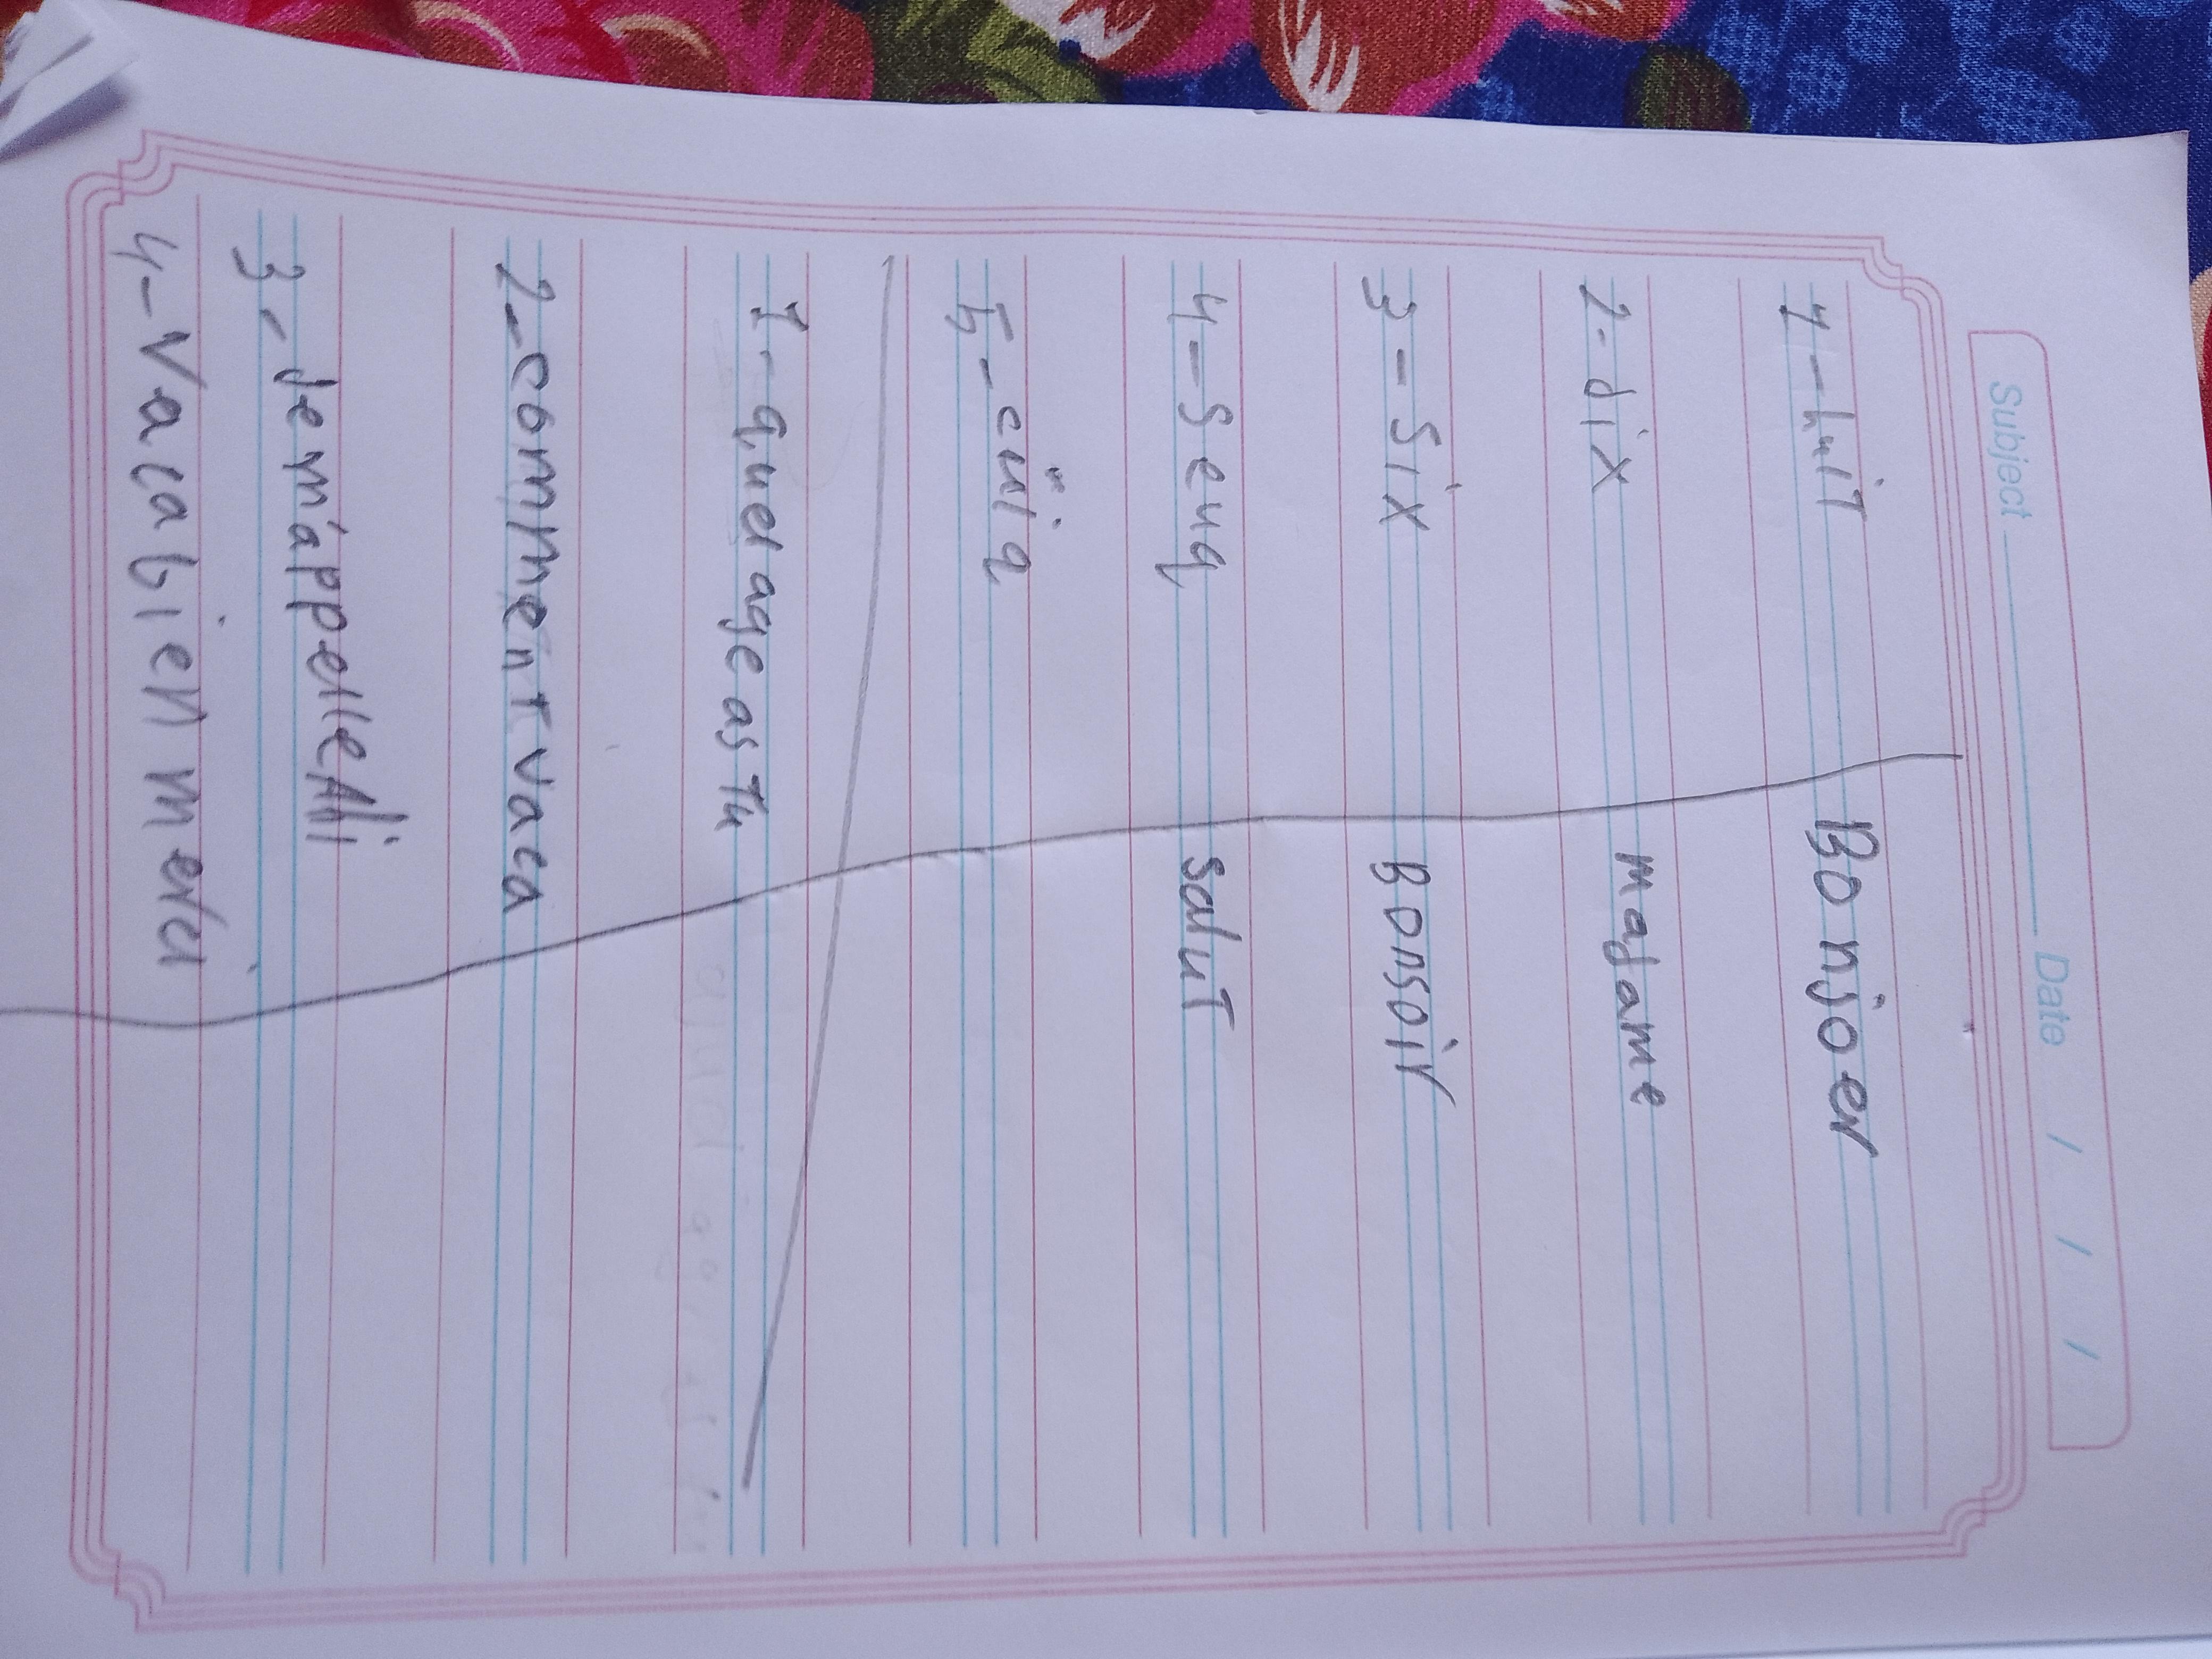 Subject Date / / /
1-huiT Bonjoer
2-dix madame
3-Six Bonsoir
4-Seuq saluT
5-cinq
1-quel age as Tu
2-comment vaca
3-Jem'appelle Ali
4-Vacabien merci